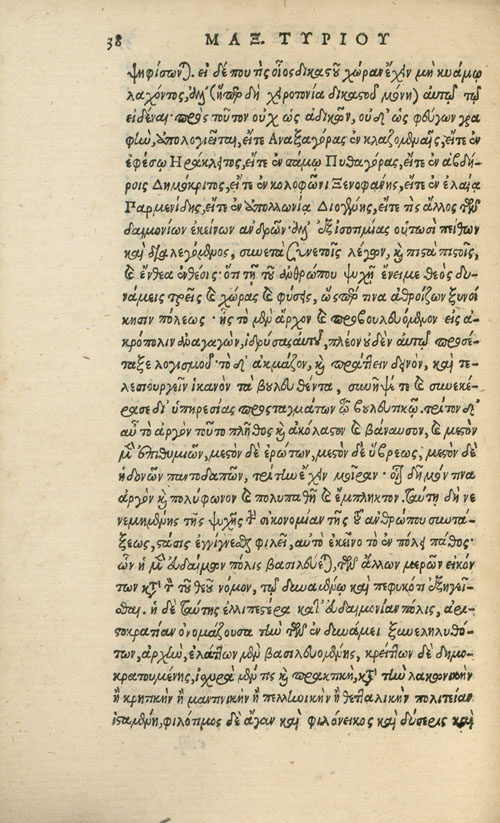 38 ΜΑΞ. ΤΥΡΙΟΥ
ψηφίσων). εἰ δέ που τὶς οἷος δικαστοῦ χώραν ἔχειν μὴ κυάμῳ
λαχόντος, ἀλλ' (ἥπερ δὴ χειροτονία δικαστοῦ μόνη) αὐτῷ τῷ
εἰδέναι· πρὸς τοῦτον οὐχ ὡς ἀδικῶν, οὐδ' ὡς φεύγων γρα
φὴν, ἀπολογεῖται, εἴτε Ἀναξαγόρας ἐν κλαζομεναῖς, εἴτε ἐν
ἐφέσῳ Ἡράκλειτος, εἴτε ἐν σάμῳ Πυθαγόρας, εἴτε ἐν αβδή-
ροις Δημόκριτος, εἴτε ἐν κολοφῶνι Ξενοφάνης, εἴτε ἐν ἐλαίᾳ
Παρμενίδης, εἴτε ἐν ἀπολλωνίᾳ Διογένης, εἴτε τὶς ἄλλος τῶν
δαιμονίων ἐκείνων ἀνδρῶν· ἀλλ' ἐξ ἰσοτιμίας οὑτωσὶ πείθων
καὶ διαλεγόμενος, συνετὰ ξυνετοῖς λέγων, καὶ πιστὰ πιστοῖς,
καὶ ἔνθεα ἐνθέοις· ὅτι τῇ τοῦ ἀνθρώπου ψυχῇ ἔνειμε θεὸς δυ-
νάμεις τρεῖς καὶ χώρας καὶ φύσεις, ὥσπερ τινα ἀθροίζων ξυνοί
κησιν πόλεως· ἧς τὸ μὲν ἄρχον καὶ προβουλευόμενον εἰς ἀ-
κρόπολιν ἀναγαγὼν, ἱδρύσας αὐτοῦ, πλέον οὐδὲν αὐτῷ προσέ-
ταξε λογισμοῦ· τὸ δ' ἀκμάζον, καὶ πράττειν δεινὸν, καὶ τε-
λεσιουργεῖν ἱκανὸν τὰ βουλευθέντα, συνῆψέ τε καὶ συνεκέ-
ρασε δι' ὑπηρεσίας προσταγμάτων τῷ βουλευτικῷ. τρίτον δ'
αὖ τὸ ἀργὸν τοῦτο πλῆθος καὶ ἀκόλαστον καὶ βάναυσον, καὶ μεστὸν
μὲν ἐπιθυμιῶν, μεστὸν δὲ ἐρώτων, μεστὸν δὲ ὕβρεως, μεστὸν δὲ
ἡδονῶν παντοδαπῶν, τρίτην ἔχειν μοῖραν· οἷον δῆμόν τινα
ἀργὸν καὶ πολύφωνον καὶ πολυπαθῆ καὶ ἔμπληκτον. ταύτῃ δὴ νε
νεμημένης τῆς ψυχῆς τῆς οἰκονομίαν τῆς τοῦ ἀνθρώπου συντά-
ξεως, στάσις ἐγγίγνεσθαι φιλεῖ, αὐτὸ ἐκεῖνο τὸ ἐν πόλει πάθος·
ὧν ἡ μὲν εὐδαίμων πόλις βασιλεύεται, τῶν ἄλλων μερῶν εἰκόν
των κατὰ τὸν τοῦ θεοῦ νόμον, τῷ δυναμένῳ καὶ πεφυκότι ἐξηγεῖ-
σθαι. ἡ δὲ ταύτης ἐλλιπεστέρα κατ' εὐδαιμονίαν πόλις, ἀρι-
στοκρατίαν ὀνομάζουσα τὴν τῶν ἐν δυνάμει ξυνεληλυθό-
των, ἀρχὴν, ἐλάττων μὲν βασιλευομένης, κρείττων δὲ δημο-
κρατουμένης, ἰσχυρὰ μέν τις καὶ πρακτικὴ, κατὰ τὴν λακωνικὴν
ἢ κρητικὴν ἢ μαντινικὴν ἢ πελληνικὴν ἢ θετταλικὴν πολιτείαν
ἱσταμένη, φιλότιμος δὲ ἄγαν καὶ φιλόνεικος καὶ δύσερις καὶ